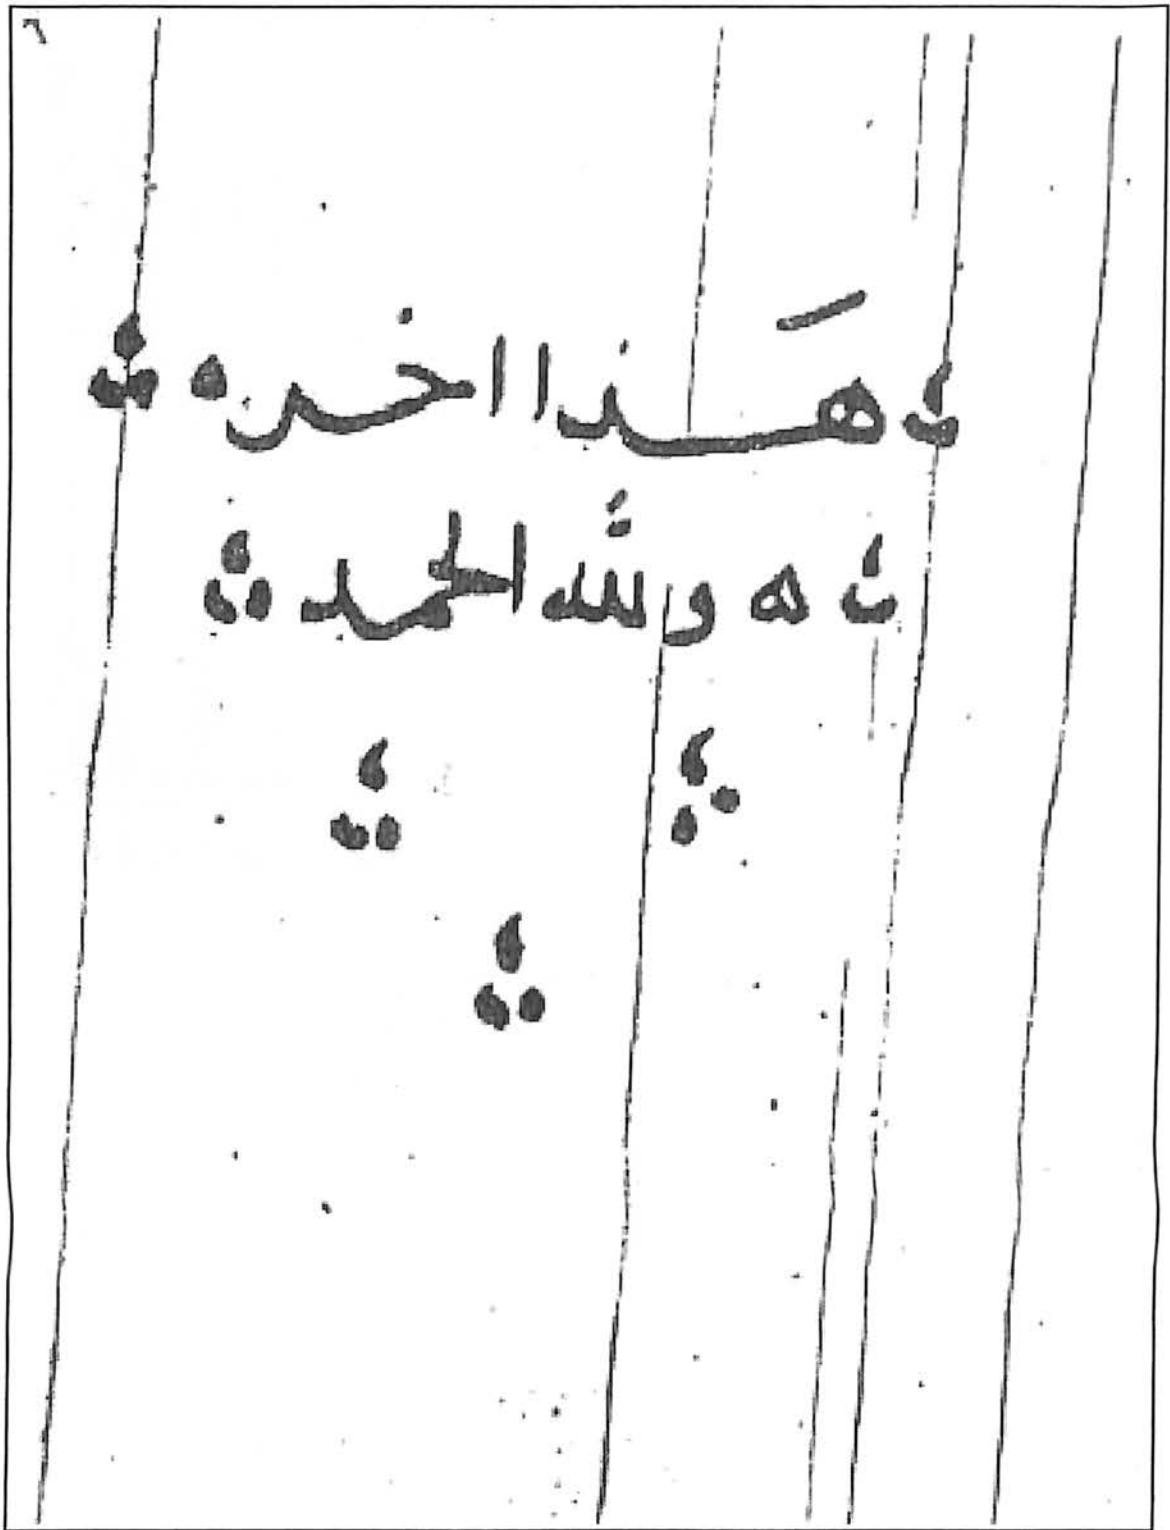 هَذا اخره
ه ولله الحمد